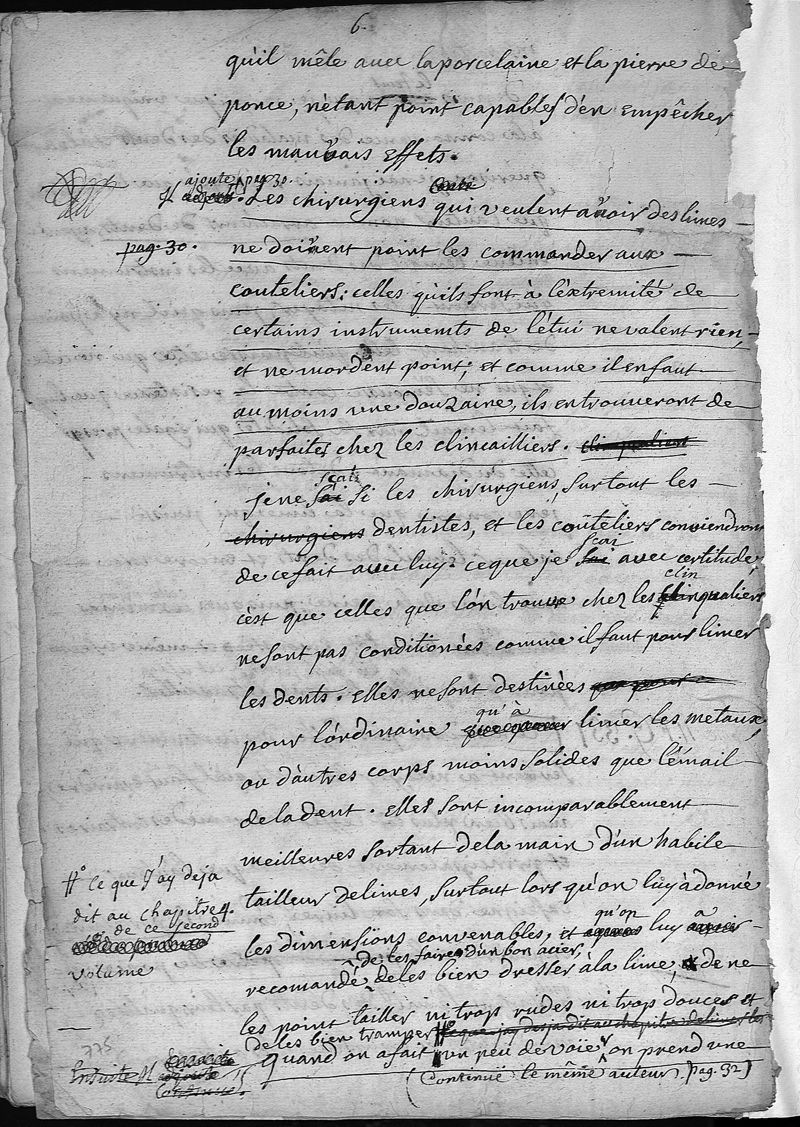 6.
qu'il mêle avec la porcelaine et la pierre de
ponce, n'etant point capables d'en empêcher
les mauvais effets.
ajoute pag. 30.
Les chirurgiens qui veulent avoir des limes
pag. 30.
ne doivent point les commander aux
couteliers: celles qu'ils font à l'extremité de
certains instruments de l'étui ne valent rien,
et ne mordent point; et comme il en faut
au moins une douzaine, ils en trouveront de
parfaites chez les clincailliers.
sçais
je ne sai si les chirurgiens, surtout les
chirurgiens dentistes, et les coûteliers conviendront
sçai
de ce fait avec luy: ce que je sai avec certitude,
clin
c'est que celles que l'on trouve chez les clinqualiers
ne sont pas conditionées comme il faut pour limer
les dents. elles ne sont destinées
qu'à
pour l'ordinaire limer les metaux,
ou d'autres corps moins solides que l'émail
de la dent. elles sont incomparablement
meilleures sortant de la main d'un habile
tailleur de limes, surtout lors qu'on luy à donné
qu'on a
les dimensions convenables, et luy
de les faire d'un bon acier,
recomandé de les bien dresser à la lime, de ne
les point tailler ni trop rudes ni trop douces et
de les bien tramper ce que j'ay deja dit au chapitre
Quand on a fait un peu de voïe, on prend une
(Continuë le même auteur. pag. 32)
ce que J'ay deja
dit au chapitre 4.
de ce second
volume
735
Ensuite